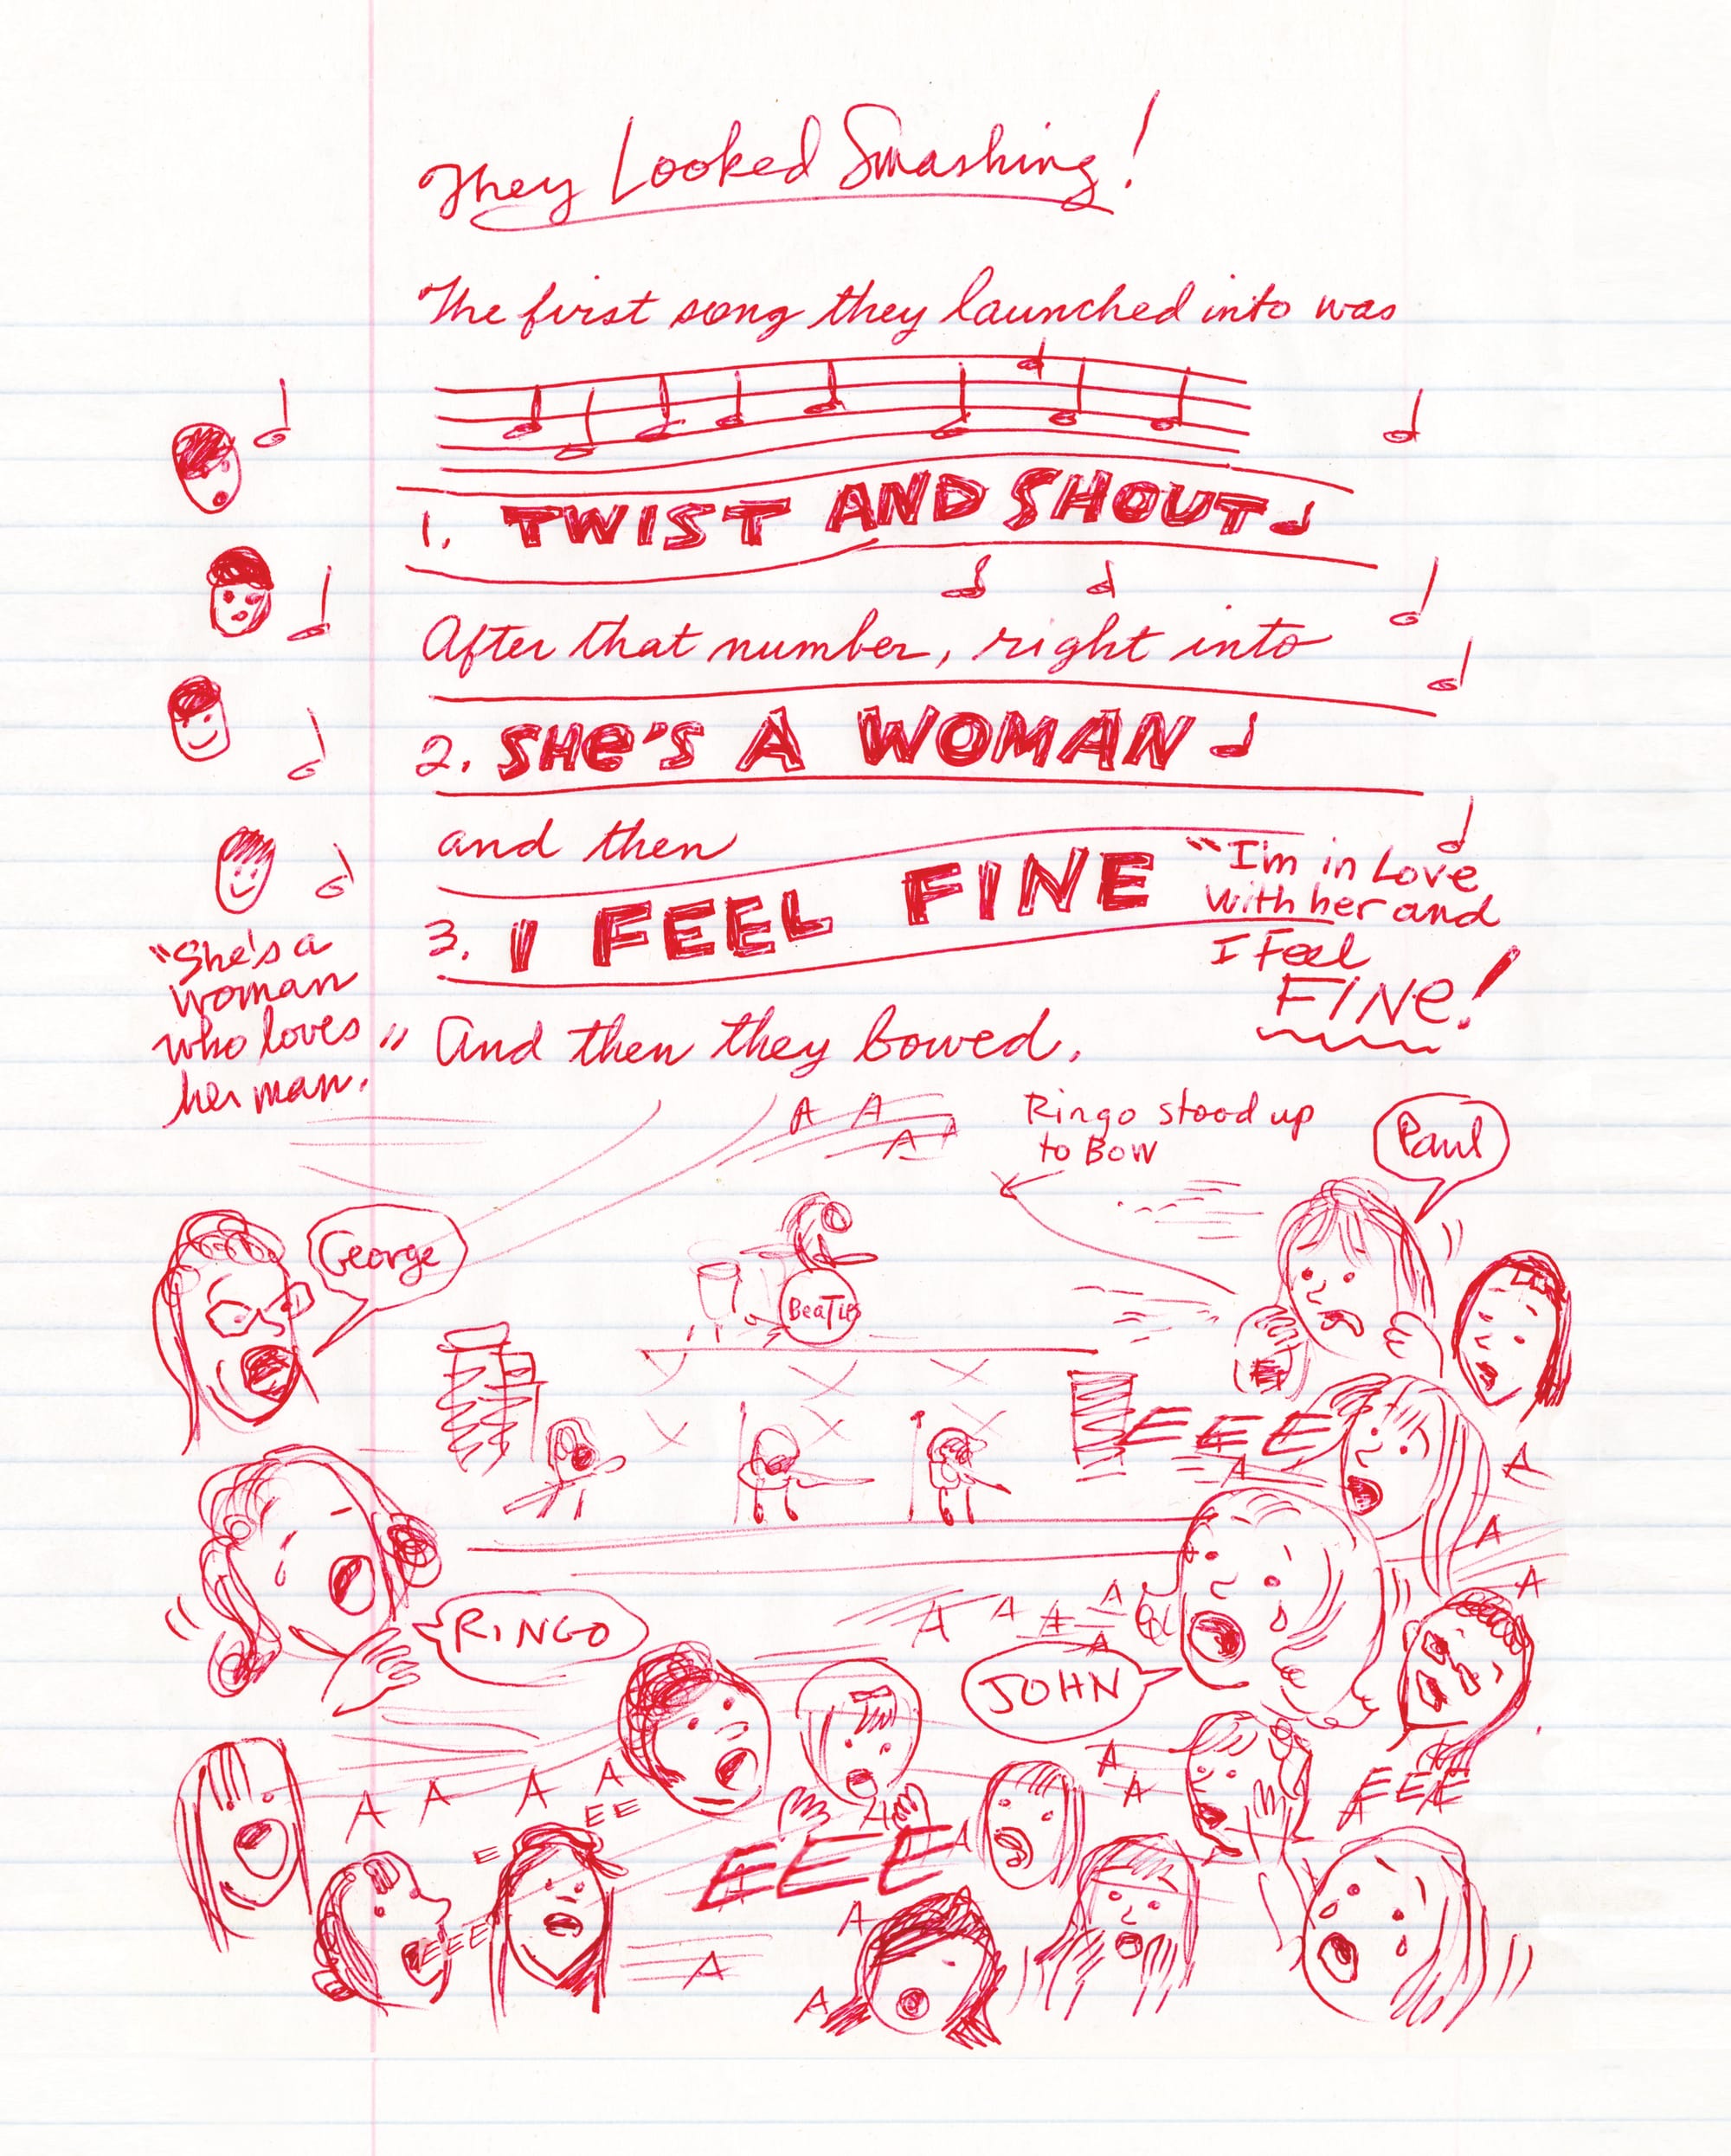 They Looked Smashing!
The first song they launched into was
1. TWIST AND SHOUT
After that number, right into
2. SHe's A WOMAN
and then
3. I FEEL FINE
"I'm in Love
with her and
I Feel
FINe!
"She's a
woman
who loves
her man."
And then they bowed.
A A
A A
Ringo stood up
to Bow
Paul
George
BeaTles
EEE
A
A
A
A
RINGO
A A A A
A
JOHN
A A A A
A
A
EEE
A A
EE
E
EEE
A
A
A
EEE
A
A
A